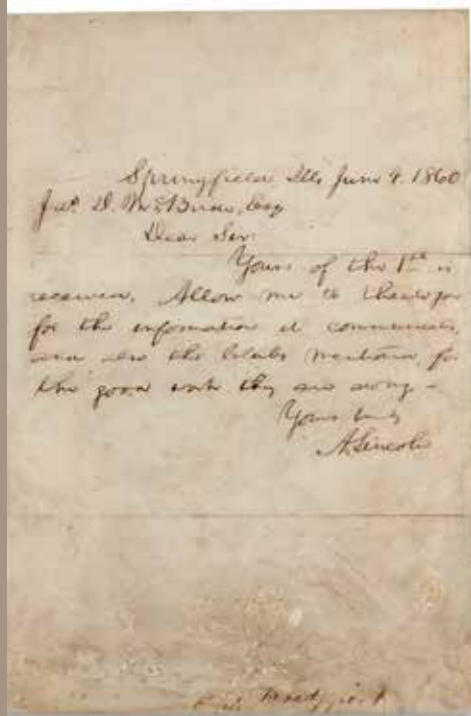 Springfield, Ills. June 4. 1860
Jas. D.
Dear Sir:
Yours of the 1st is
received. Allow me to thank you
for the information it communicates,
and also the clubs mentioned, for
the good work they are doing -
Yours truly
A. Lincoln